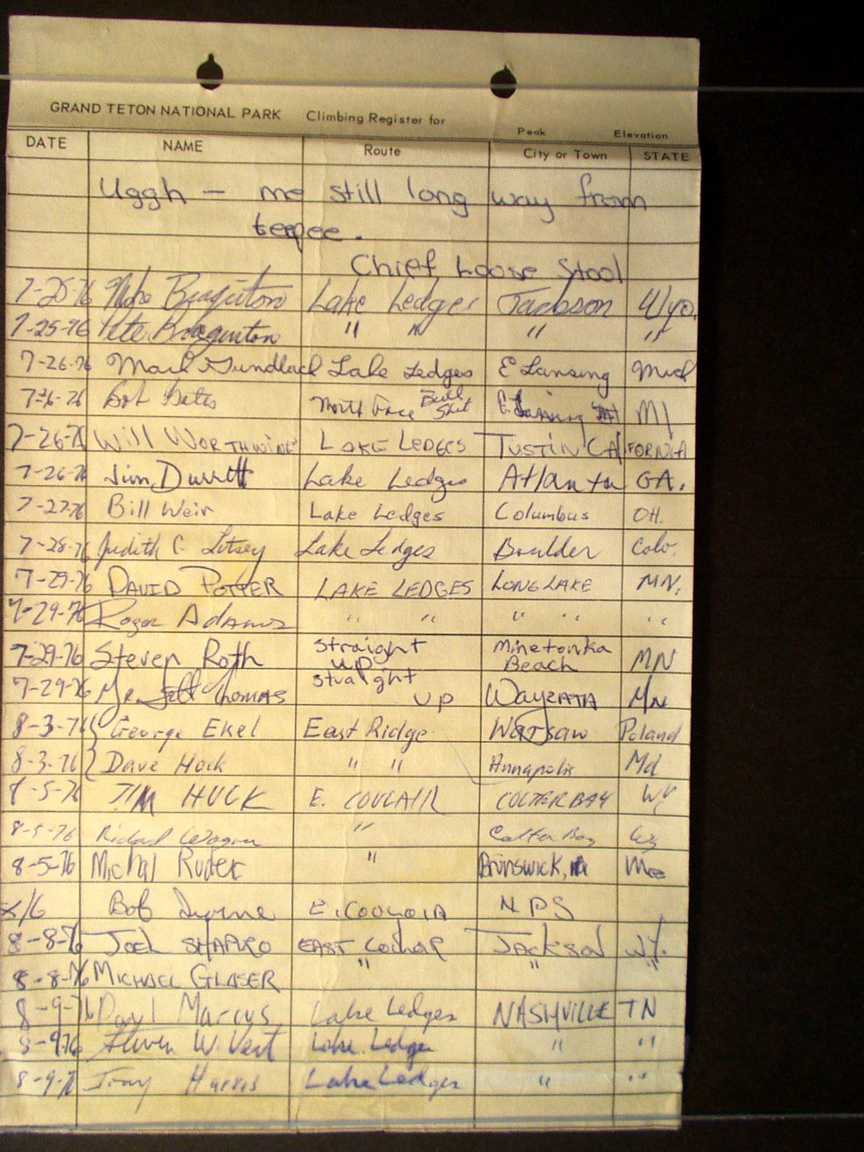 GRAND TETON NATIONAL PARK Climbing Register for
Peak Elevation
DATE NAME Route City or Town STATE
Uggh — me still long way from
teepee.
Chief Loose Stool
7-25-76 Lake Ledges Jackson Wyo.
7-25-76 Pete " " " "
7-26-76 Mark Gundlach Lake Ledges E Lansing Mich
7-26-76 Bob Bates North Face Bull Shit E. Lansing MI
7-26-76 Will Lake Ledges Tustin California
7-26-76 Jim Durrett Lake Ledges Atlanta GA.
7-27-76 Bill Weir Lake Ledges Columbus OH.
7-28-76 Judith C. Lake Ledges Boulder Colo.
7-29-76 DAVID POTTER LAKE LEDGES LONG LAKE MN.
7-29-76 Roger Adams " " " " "
7-29-76 Steven Roth straight up Minetonka Beach MN
7-29-76 Mr. Jeff Thomas straight up WAYZATA MN
8-3-76 George Ekel East Ridge Warsaw Poland
8-3-76 Dave Hock " " Annapolis Md
8-5-76 JIM HUCK E. COULAIR COLTER BAY WY
8-5-76 Richard Wagner " Colter Bay Wy
8-5-76 Michal Ruder " Brunswick, Me
8/6 Bob Irvine E. NPS
8-8-76 JOEL SHAPIRO EAST JACKSON WY.
8-8-76 MICHAEL GLASER " " "
8-9-76 Daryl Marcus Lake Ledges NASHVILLE TN
8-9-76 Steven W. Vest Lake Ledges " "
8-9-76 Tony Harris Lake Ledges " "